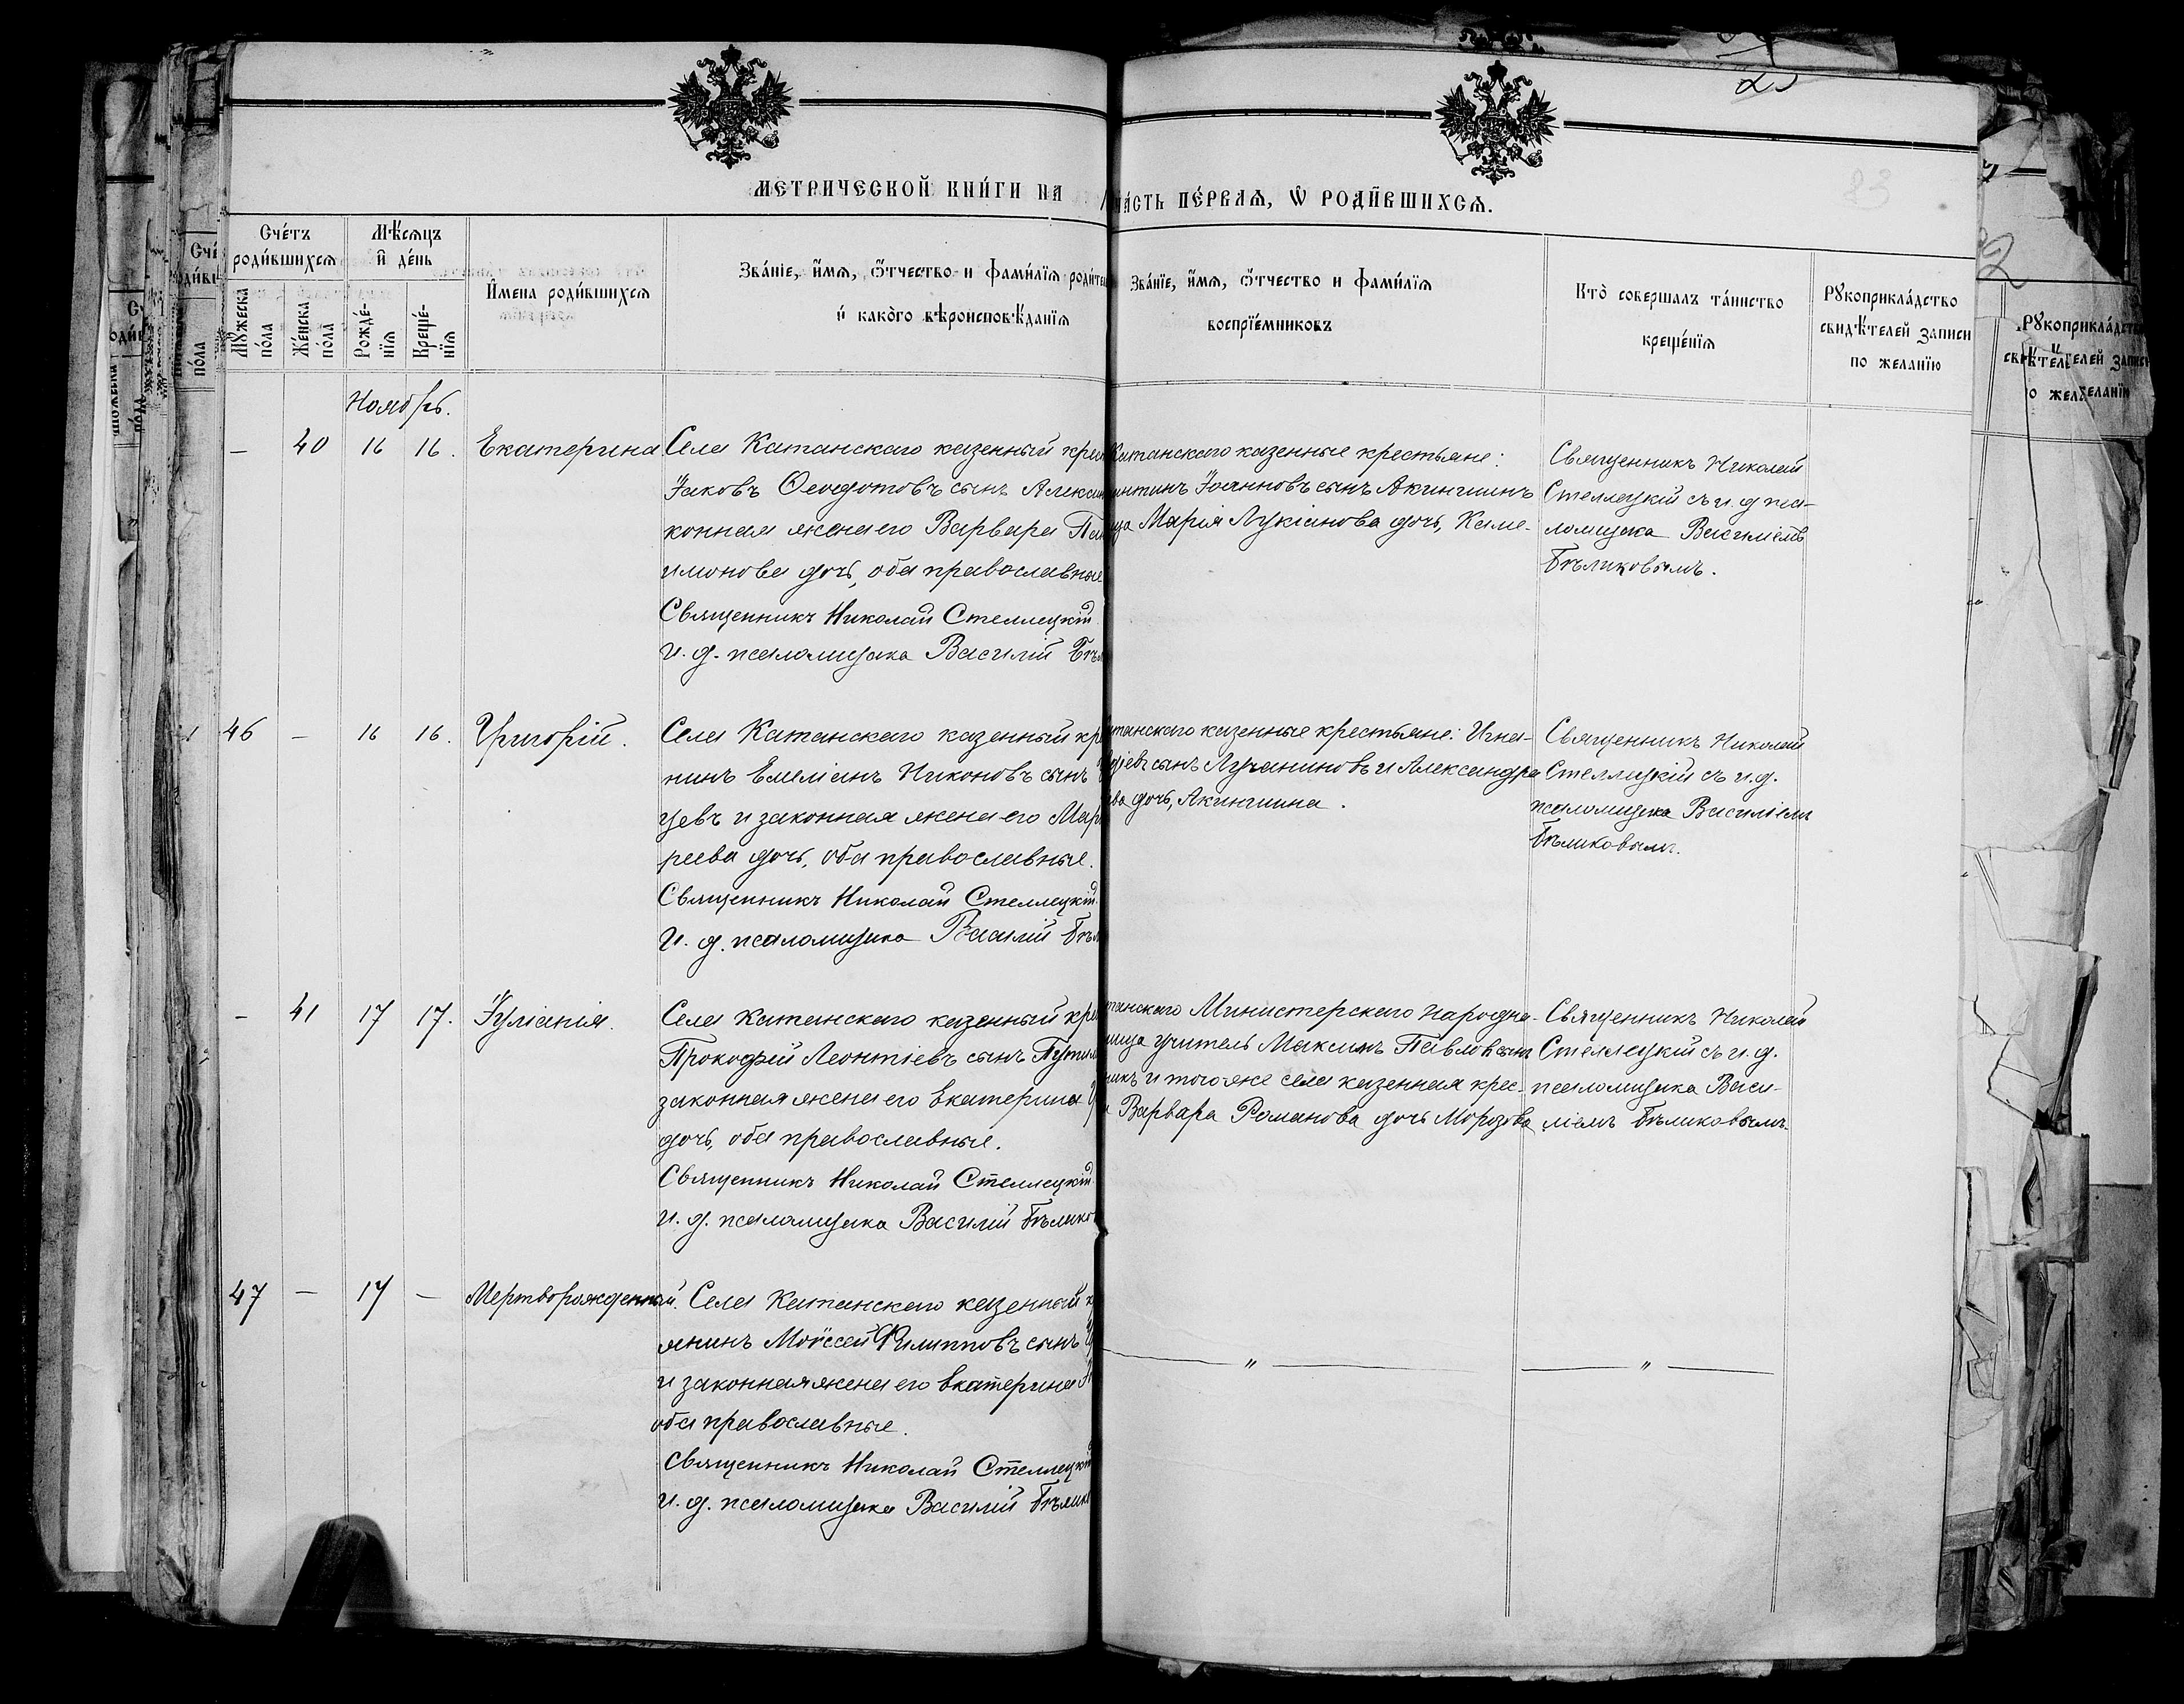 МЕТРИЧЕСКОЙ КНИ́ГИ НА
ЧА́СТЬ ПЕ́РВАѦ, Ѡ РОДИ́ВШИХСѦ.
Сче́тъ
роди́вшихсѧ
Мѣ́сѧцъ
и҆ де́нь
Мꙋжеска
по́ла
Же́нска
по́ла
Рожде́-
нїѧ
Креще́-
нїѧ
И҆мена роди́вшихсѧ
Зва́нїе, и҆́мѧ, ѻ҆́тчество и фами́лїѧ
и҆ како́го вѣроисповѣ́данїѧ
Зва́нїе, и҆́мѧ, ѻ҆́тчество и фами́лїѧ
воспрїе́мниковъ
Кто̀ соверша́лъ та́инство
креще́нїѧ
Рꙋкоприкла́дство
свидѣ́телей записи
по желанїю
Ноябрь.
— 40 16 16. Екатерина
Села Катанскаго казенный
Іаковъ Ѳеодотовъ сынъ
конная жена его Варвара
имонова дочь, оба православные
Священникъ Николай Стеллецкій
И. д. псаломщика Василій
Катанскаго казенные крестьяне:
Іоанновъ сынъ Акиншинъ
Марія Лукіанова дочь, Каме-
Священникъ Николай
Стеллецкій съ и. д. пса-
ломщика Василіемъ
Бѣликовымъ.
46 — 16 16. Григорій.
Села Катанскаго казенный
нинъ Емеліанъ Никоновъ сынъ
цевъ и законная жена его
реева дочь, оба православные.
Священникъ Николай Стеллецкій.
И. д. псаломщика Василій
казенные крестьяне: Игна-
сынъ Лучаниновъ и Александра
дочь, Акиншина.
Священникъ Николай
Стеллецкій съ и. д.
псаломщика Василіемъ
Бѣликовымъ.
— 41 17 17. Іуліанія.
Села Катанскаго казенный
Прокофій Леонтіевъ сынъ
законная жена его Екатерина
дочь, оба православные.
Священникъ Николай Стеллецкій.
И. д. псаломщика Василій
Министерскаго народна-
учитель Максимъ Павловъ сынъ
и того же села казенная крес-
Варвара Романова дочь Морозова
Священникъ Николай
Стеллецкій съ и. д.
псаломщика Васи-
ліемъ Бѣликовымъ.
47 — 17 — Мертворожденный.
Села Катанскаго казенный
янинъ Моѵсей Филипповъ сынъ
и законная жена его Екатерина
оба православные.
Священникъ Николай Стеллецкій
И. д. псаломщика Василій
— " — — " —